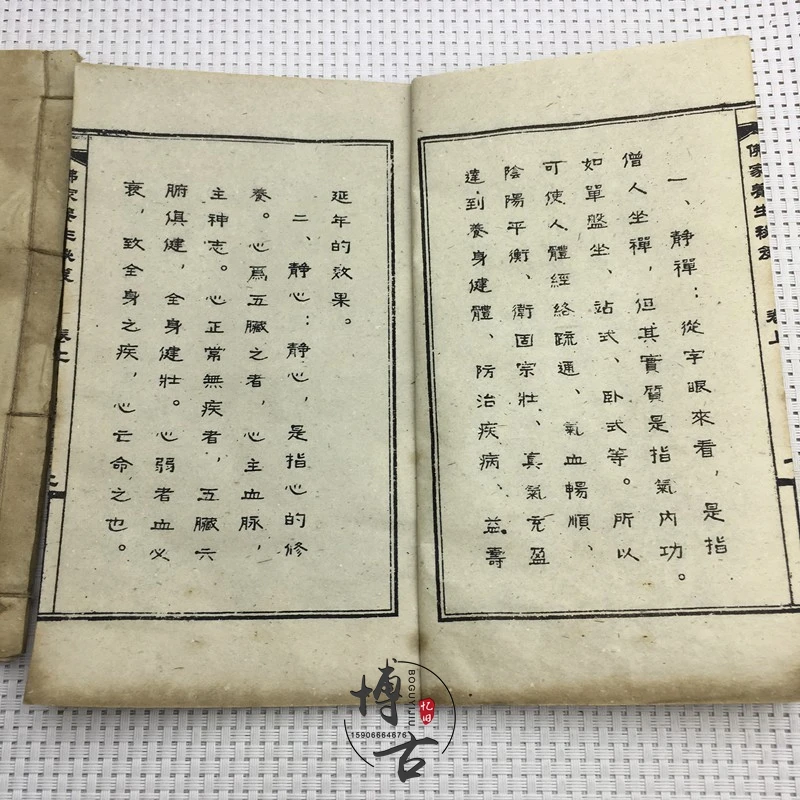 佛家養生秘笈 卷上
一、靜禪：從字眼來看，是指
僧人坐禪，但其實質是指氣內功。
如單盤坐、站式、卧式等。所以
可使人體經絡疏通、氣血暢順、
陰陽平衡、衛固宗壯、真氣充盈
達到養身健體、防治疾病、益壽
延年的效果。
二、靜心：靜心，是指心的修
養。心爲五臟之者，心主血脉，
主神志。心正常無疾者，五臟六
腑俱健，全身健壯。心弱者血必
衰，致全身之疾，心亡命之也。
卷上
博古
BOGUYIJIU
忆旧
15906664676